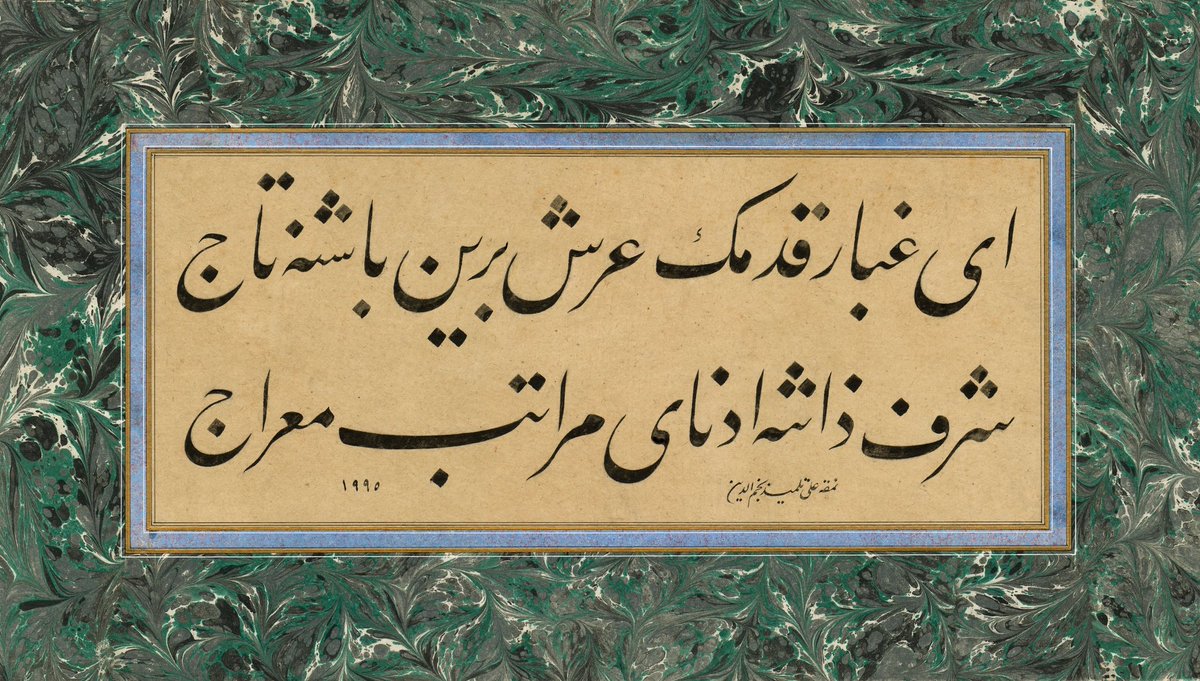 ای غبار قدمك عرش برین باشنه تاج
شرف ذاتنه ادنای مراتب معراج
نمقه علی تلمیذ نجم الدین
١٩٩٥